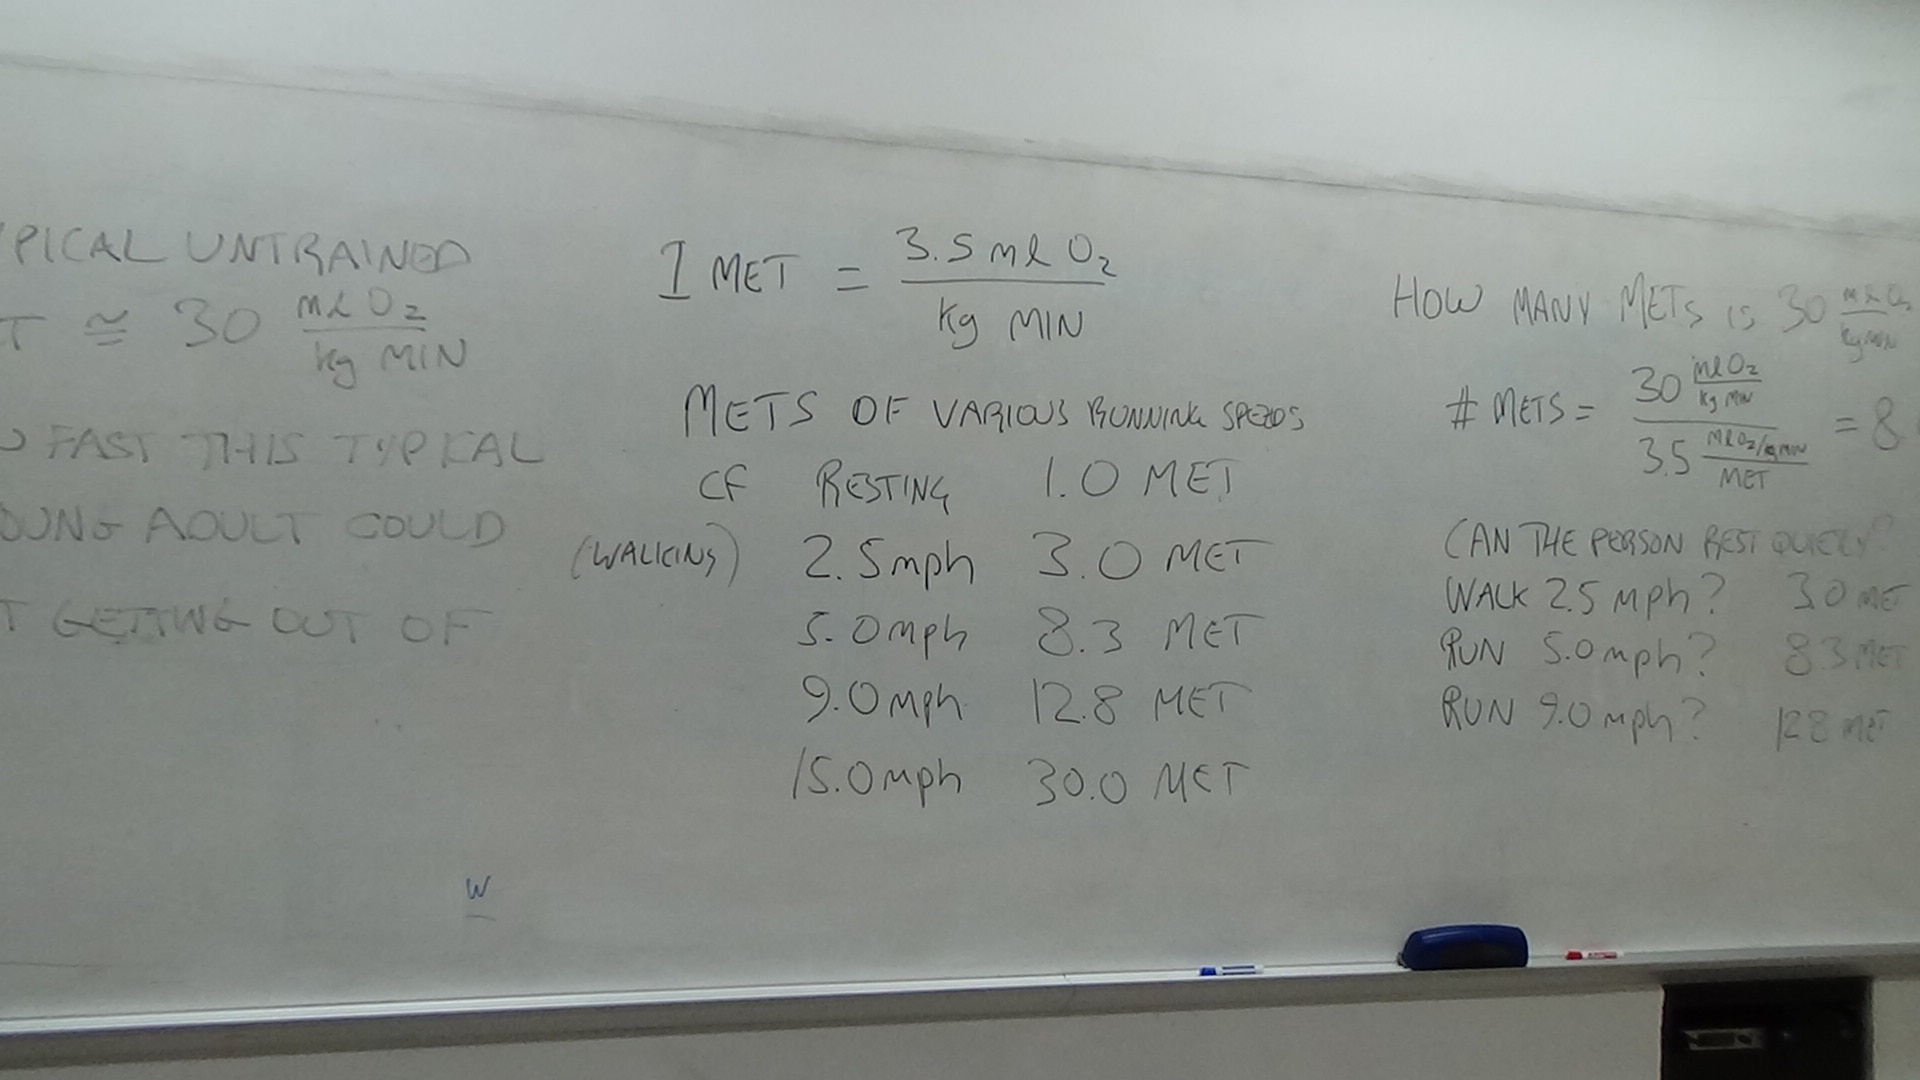 PICAL UNTRAINED
T ≅ 30 ml O2 / kg MIN
FAST THIS TYPICAL
OUNG ADULT COULD
T GETTING OUT OF
1 MET = 3.5 ml O2 / kg MIN
METS OF VARIOUS RUNNING SPEEDS
CF RESTING 1.0 MET
(WALKING) 2.5mph 3.0 MET
5.0mph 8.3 MET
9.0mph 12.8 MET
15.0mph 30.0 MET
W
HOW MANY METS IS 30 ml O2 / kg MIN
# METS = 30 ml O2 / kg MIN / 3.5 ml O2/kg MIN / MET = 8
CAN THE PERSON REST QUIETLY?
WALK 2.5 mph? 3.0 MET
RUN 5.0mph? 8.3 MET
RUN 9.0mph? 12.8 MET